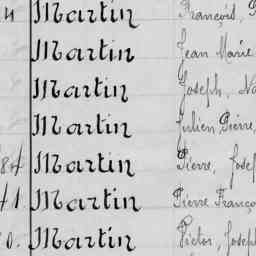 4 Martin François,
Martin Jean Marie
Martin Joseph,
Martin Julien, Pierre,
84 Martin Pierre, Josep
41. Martin Pierre Franço
0. Martin Victor, Josep